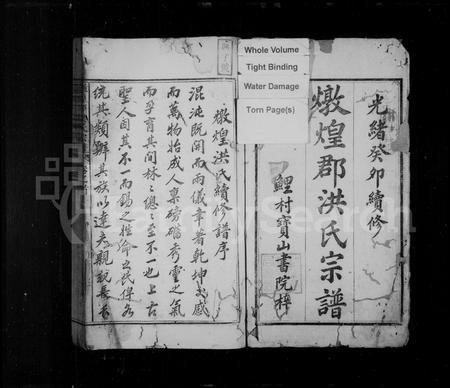 Whole Volume
Tight Binding
Water Damage
Torn Page(s)
光緒癸卯續修
燉煌郡洪氏宗譜
鯉村寶山書院梓
燉煌洪氏續修譜序
混沌既開而兩儀聿著乾坤交感
而萬物始成人稟磅礴秀靈之氣
而孕育其間林二總二至不一也上古
聖人因其不一而錫之姓倫之氏俾各
統其類辨其族以達夫親親長長
FamilySearch